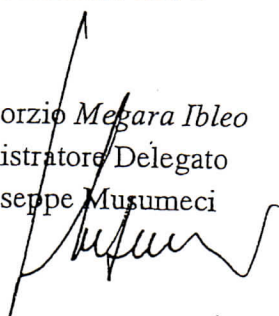 orzio Megara Ibleo
istratore Delegato
seppe Musumeci